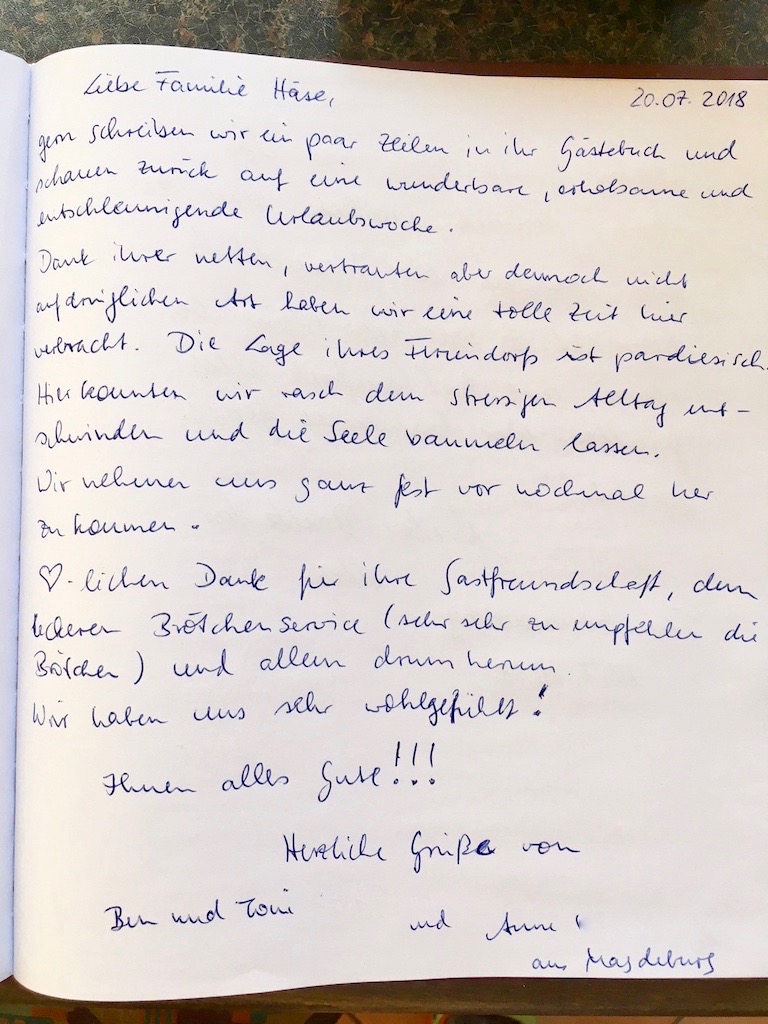 Liebe Familie Häse,
20.07.2018
gern schreiben wir ein paar Zeilen in ihr Gästebuch und
schauen zurück auf eine wunderbare, erholsame und
entschleunigende Urlaubswoche.
Dank ihrer netten, vertrauten aber dennoch nicht
aufdringlichen Art haben wir eine tolle Zeit hier
verbracht. Die Lage ihres Feriendorfs ist pardiesisch.
Hier konnten wir rasch dem stressigen Alltag ent-
schwinden und die Seele baumeln lassen.
Wir nehmen uns ganz fest vor nochmal her
zu kommen.
♡-lichen Dank für ihre Gastfreundschaft, dem
leckeren Brötchenservice (sehr sehr zu empfehlen die
Brötchen) und allem drumherum.
Wir haben uns sehr wohlgefühlt!
Ihnen alles Gute!!!
Herzliche Grüße von
Ben und Toni
und Anne
aus Magdeburg